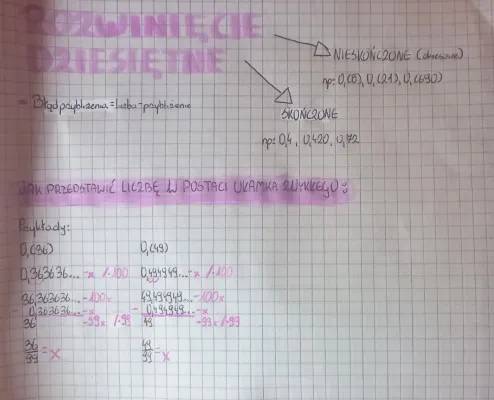 ROZWINIĘCIE
DZIESIĘTNE
NIESKOŃCZONE (okresowe)
np: 0,(6), 0,(21), 0,(690)
- Błąd przybliżenia = liczba - przybliżenie
SKOŃCZONE
np: 0,4, 0,420, 0,72
JAK PRZEDSTAWIĆ LICZBĘ W POSTACI UŁAMKA ZWYKŁEGO:
Przykłady:
0,(36) 0,(49)
0,363636... = x /·100 0,494949... = x /·100
36,363636... = 100x 49,494949... = 100x
- 0,363636... = x - 0,494949... = x
36 = 99x /:99 49 = 99x /:99
36/99 = x 49/99 = x